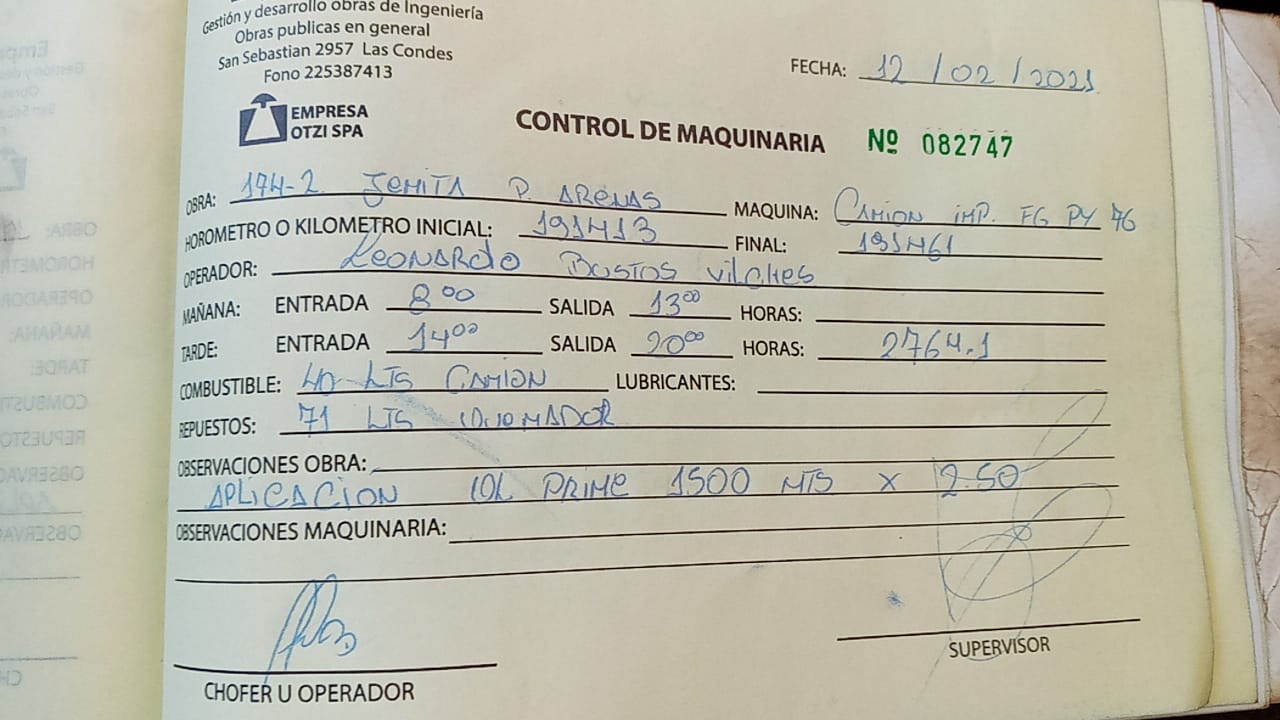 Gestión y desarrollo obras de Ingeniería
Obras publicas en general
San Sebastian 2957 Las Condes
Fono 225387413
FECHA: 12/02/2021
EMPRESA
OTZI SPA
CONTROL DE MAQUINARIA Nº 082747
OBRA: 174-2 P. ARENAS MAQUINA: CAMION IMP. FG PY 76
HOROMETRO O KILOMETRO INICIAL: 191413 FINAL: 191461
OPERADOR: LEONARDO BUSTOS VILCHES
MAÑANA: ENTRADA 8 00 SALIDA 13 00 HORAS:
TARDE: ENTRADA 14 00 SALIDA 20 00 HORAS: 2764.1
COMBUSTIBLE: 40 LTS CAMION LUBRICANTES:
REPUESTOS: 71 LTS
OBSERVACIONES OBRA:
APLICACION PRIME 1500 MTS X 2.50
OBSERVACIONES MAQUINARIA:
CHOFER U OPERADOR
SUPERVISOR